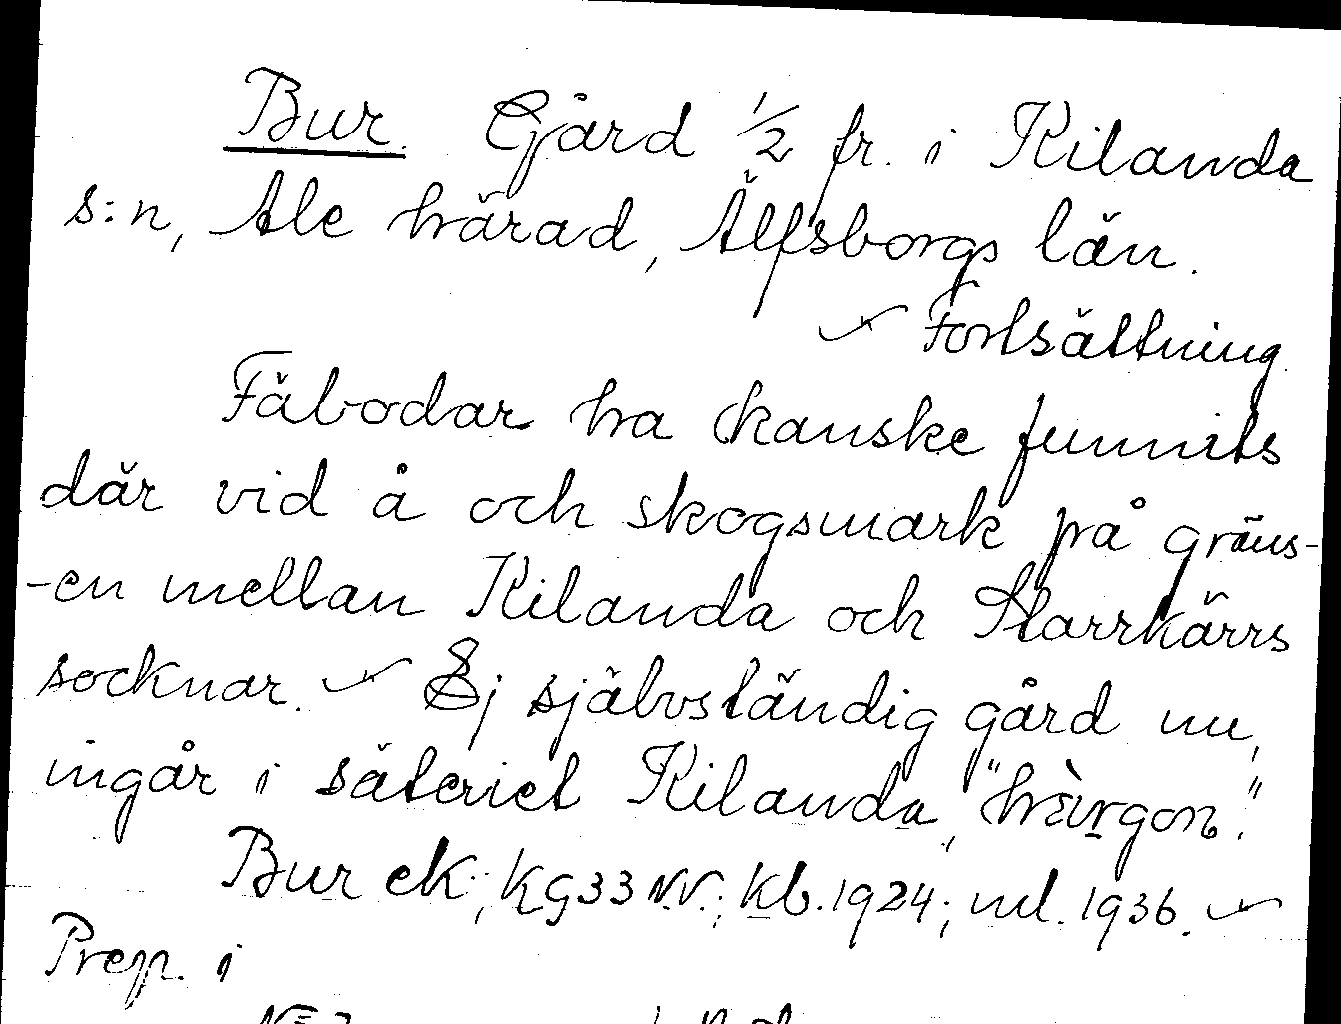 Bur. Gård 1/2 fr. i Kilanda
s:n, Ale härad, Älfsborgs län.
Fortsättning
Fäbodar ha kanske funnits
där vid å och skogsmark på gräns-
-en mellan Kilanda och Starrkärrs
socknar. Ej självständig gård nu,
ingår i säteriet Kilanda,
Bur ek; Kg 33 N.V.; Kb. 1924; utl. 1936.
Prep. i